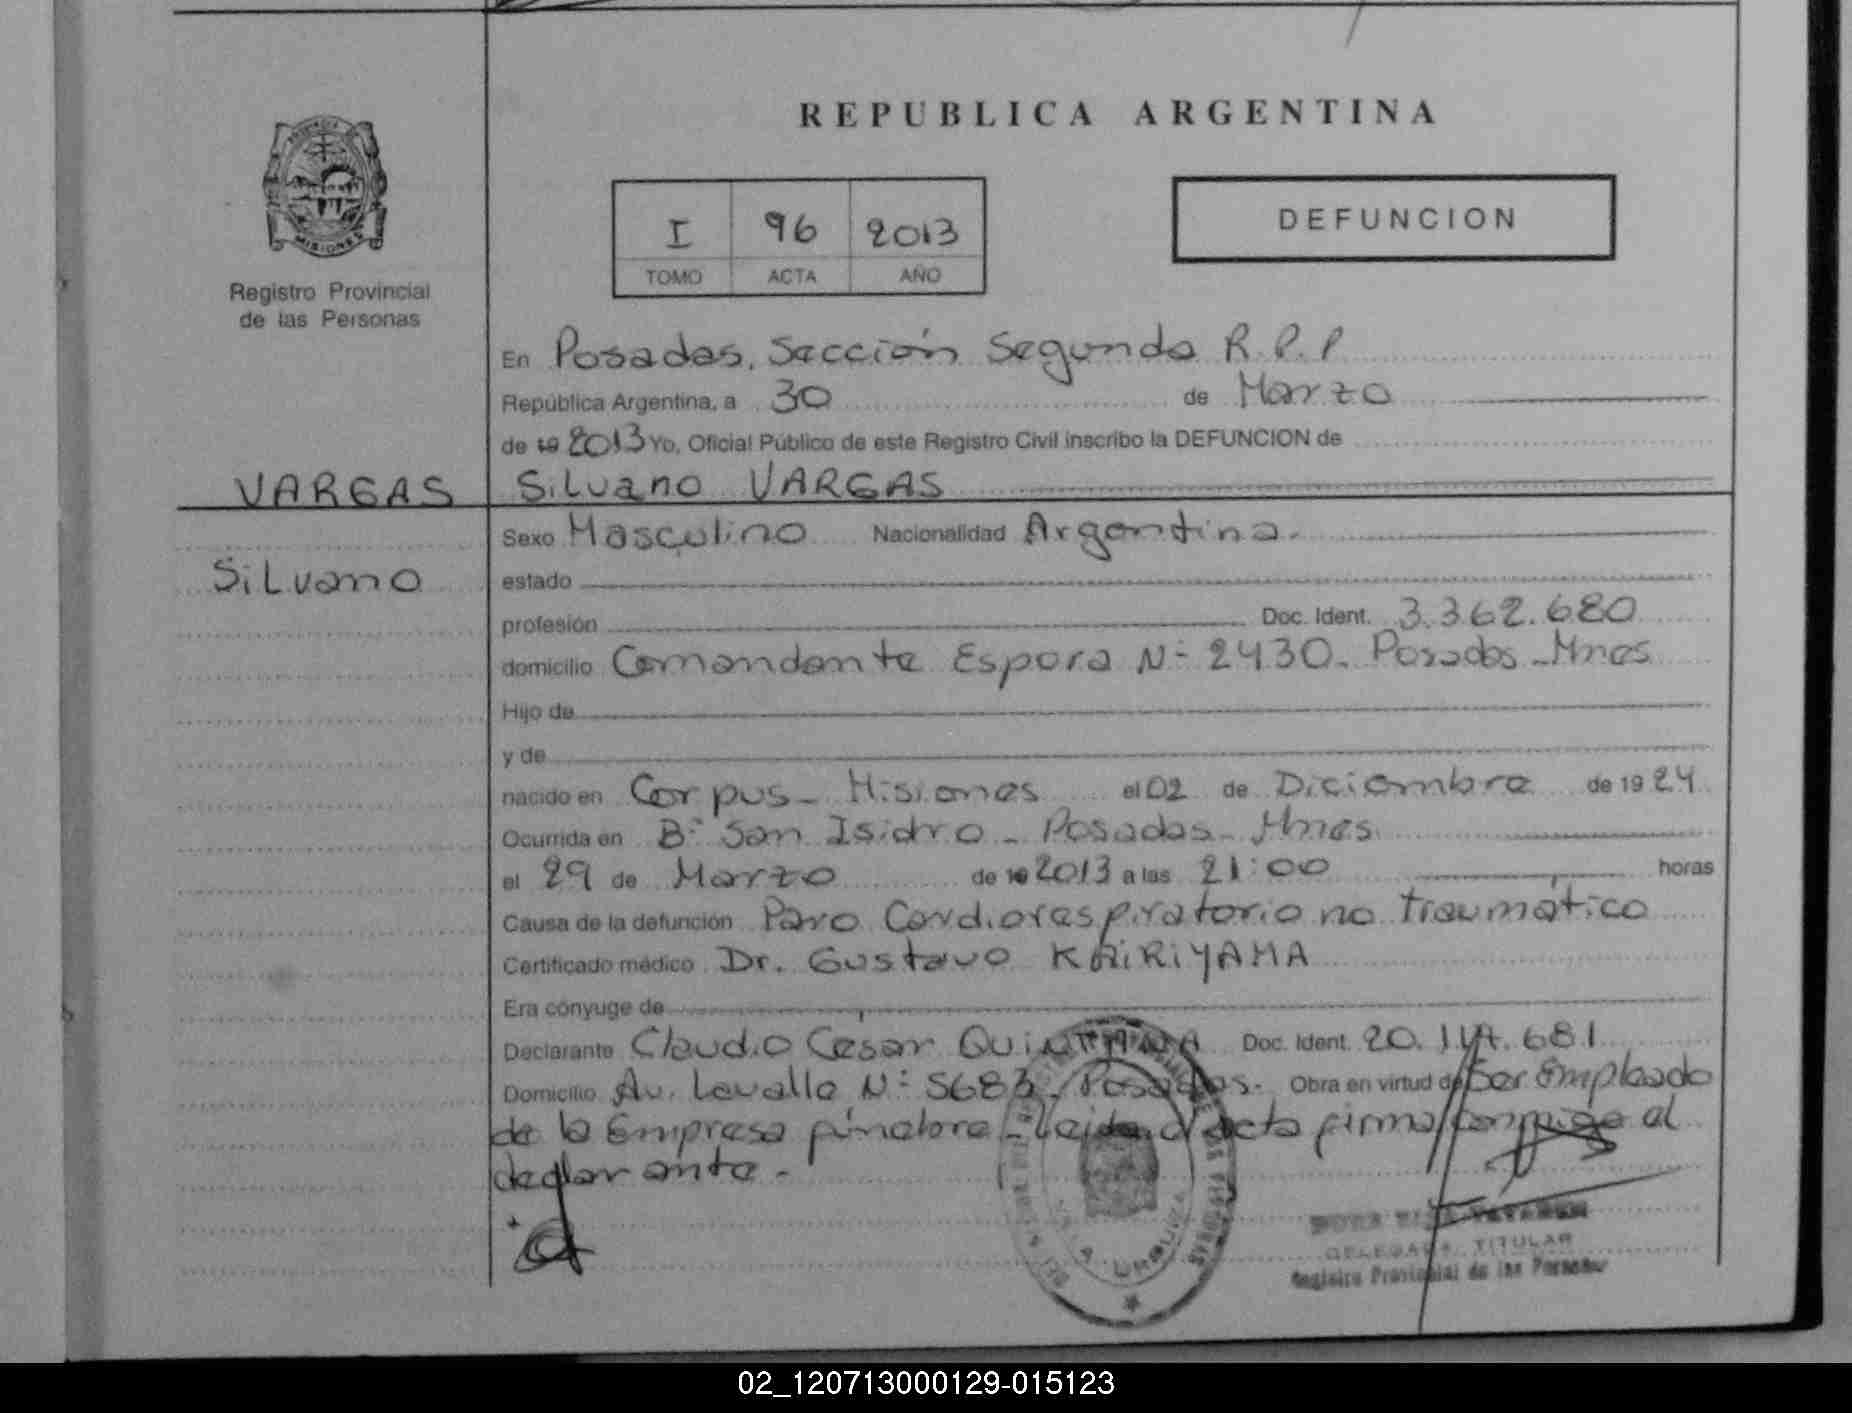 REPUBLICA ARGENTINA
PROVINCIA
MISIONES
Registro Provincial
de las Personas
I 96 2013
TOMO ACTA AÑO
DEFUNCION
En Posadas, Sección Segunda R.P.P
República Argentina, a 30 de Marzo
de 19 2013 Yo, Oficial Público de este Registro Civil inscribo la DEFUNCION de
VARGAS
Silvano VARGAS
Silvano
Sexo Masculino Nacionalidad Argentina.
estado
profesión Doc. Ident. 3.362.680
domicilio Comandante Espora N° 2430. Posadas - Mnes
Hijo de
y de
nacido en Corpus - Misiones el 02 de Diciembre de 1924
Ocurrida en B° San Isidro - Posadas - Mnes
el 29 de Marzo de 19 2013 a las 21:00 horas
Causa de la defunción Paro Cardiorespiratorio no traumático
Certificado médico Dr. Gustavo KAIRIYAMA
Era cónyuge de
Declarante Claudio Cesar QUINTANA Doc. Ident. 20. .681
Domicilio Av. Lavalle N° 5683 - Posadas. Obra en virtud de Ser Empleado
de la Empresa - Leida el acta firma conmigo el
declarante -
VILLA URQUIZA
DELEGADA TITULAR
Registro Provincial de las Personas
02_120713000129-015123